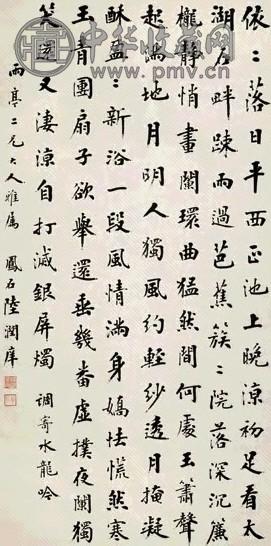 依〻落日平西正池上晚涼初足看太
湖石畔踈雨過芭蕉簇〻院落深沉簾
櫳靜悄畫闌環曲猛然間何處玉簫聲
起滿地月明人獨風約輕紗透月掩凝
酥盈〻新浴一段風情滿身嬌怯慌然寒
玉青團扇子欲舉還垂幾番虛撲夜闌獨
笑還又淒涼自打滅銀屏燭 調寄水龍吟
雨亭二兄大人雅屬 鳳石陸潤庠
中华收藏网